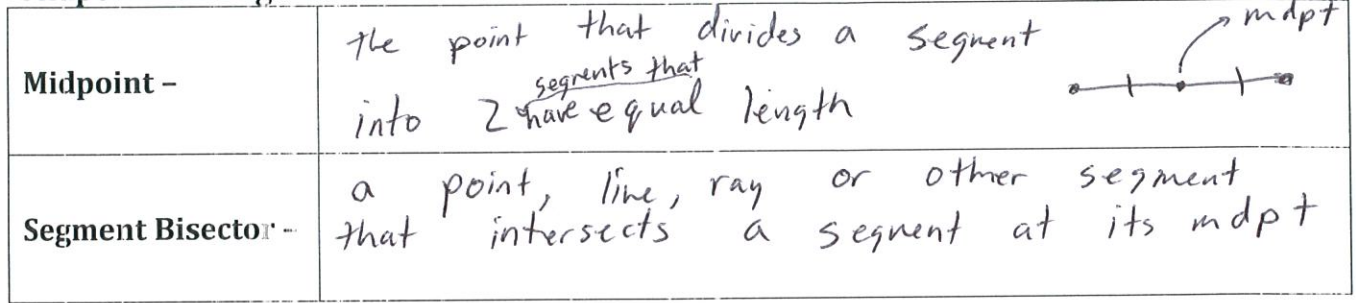 Midpoint –
the point that divides a segment
into 2 segments that have equal length
mdpt
Segment Bisector -
a point, line, ray or other segment
that intersects a segment at its mdpt